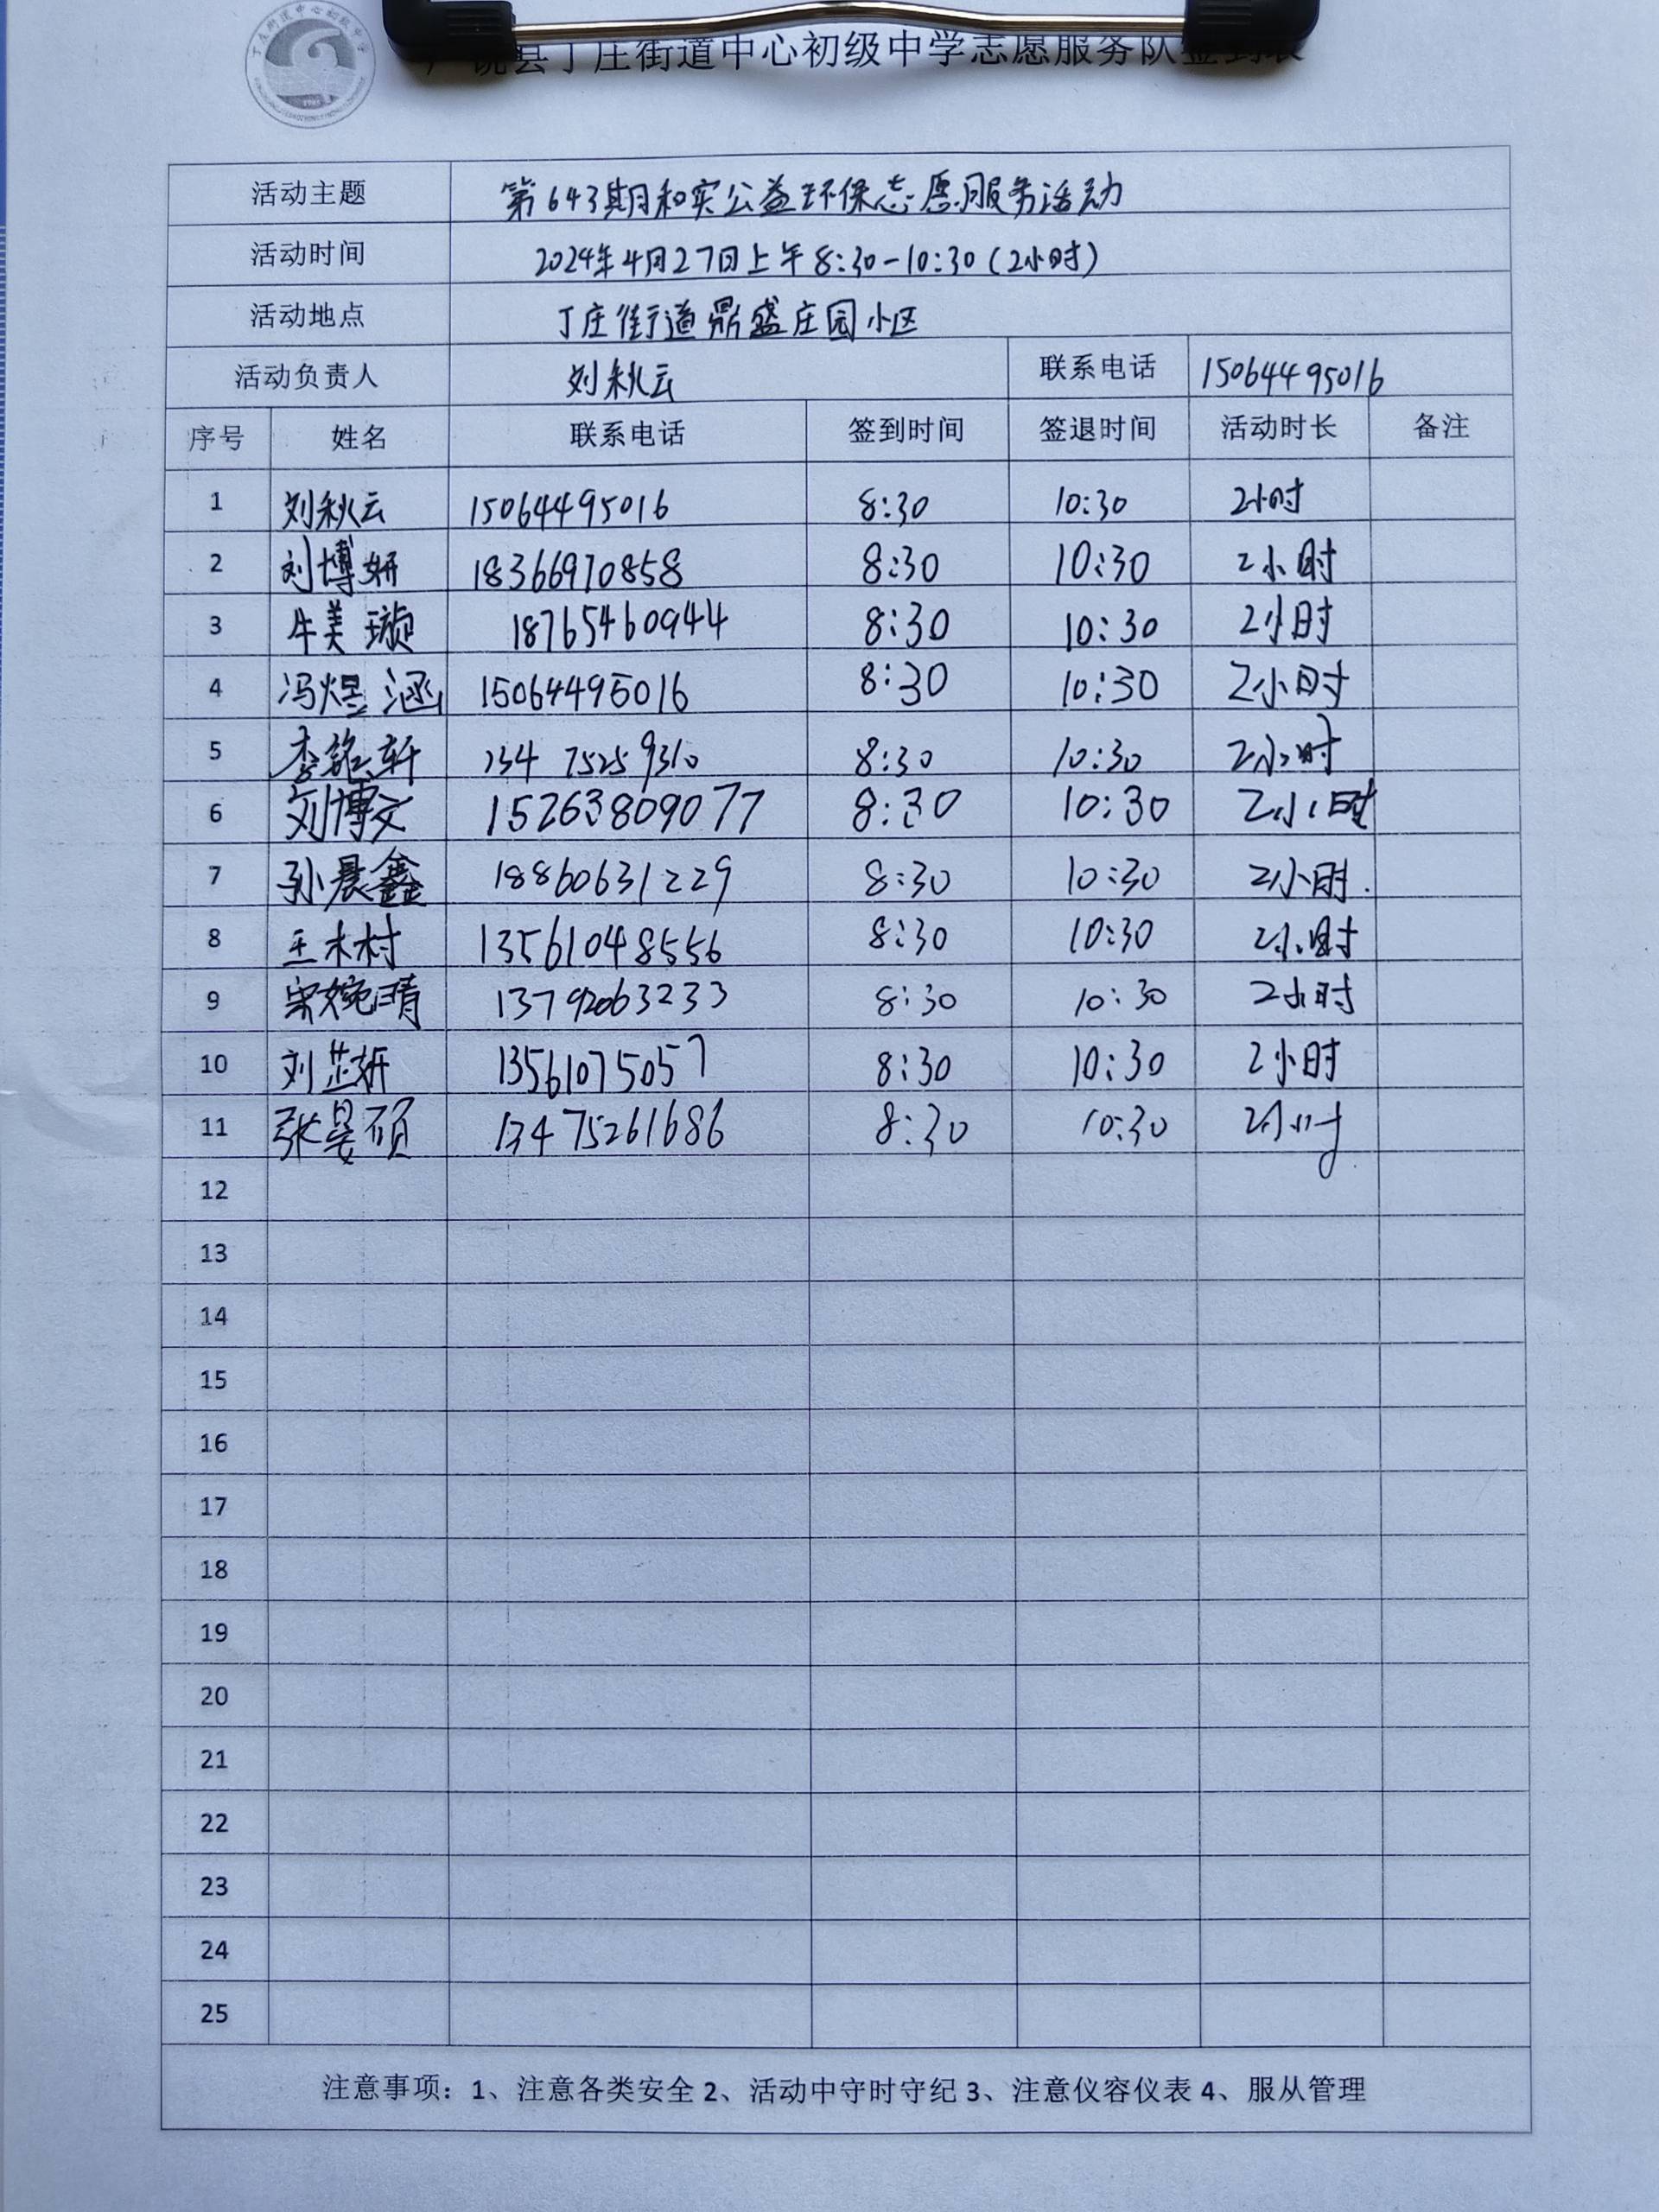 广饶县丁庄街道中心初级中学志愿服务队签到表
活动主题 第643期和实公益环保志愿服务活动
活动时间 2024年4月27日上午8:30-10:30(2小时)
活动地点 丁庄街道鼎盛庄园小区
活动负责人 刘秋云 联系电话 15064495016
序号 姓名 联系电话 签到时间 签退时间 活动时长 备注
1 刘秋云 15064495016 8:30 10:30 2小时
2 刘博妍 18366970858 8:30 10:30 2小时
3 牛美璇 18765460944 8:30 10:30 2小时
4 冯煜涵 15064495016 8:30 10:30 2小时
5 李铭轩 134 7525 9310 8:30 10:30 2小时
6 刘博文 15263809077 8:30 10:30 2小时
7 孙晨鑫 18860631229 8:30 10:30 2小时.
8 王木村 13561048556 8:30 10:30 2小时
9 宋婉晴 13792063233 8:30 10:30 2小时
10 刘芷妍 13561075057 8:30 10:30 2小时
11 张晏硕 13475261686 8:30 10:30 2小时
12
13
14
15
16
17
18
19
20
21
22
23
24
25
注意事项：1、注意各类安全 2、活动中守时守纪 3、注意仪容仪表 4、服从管理